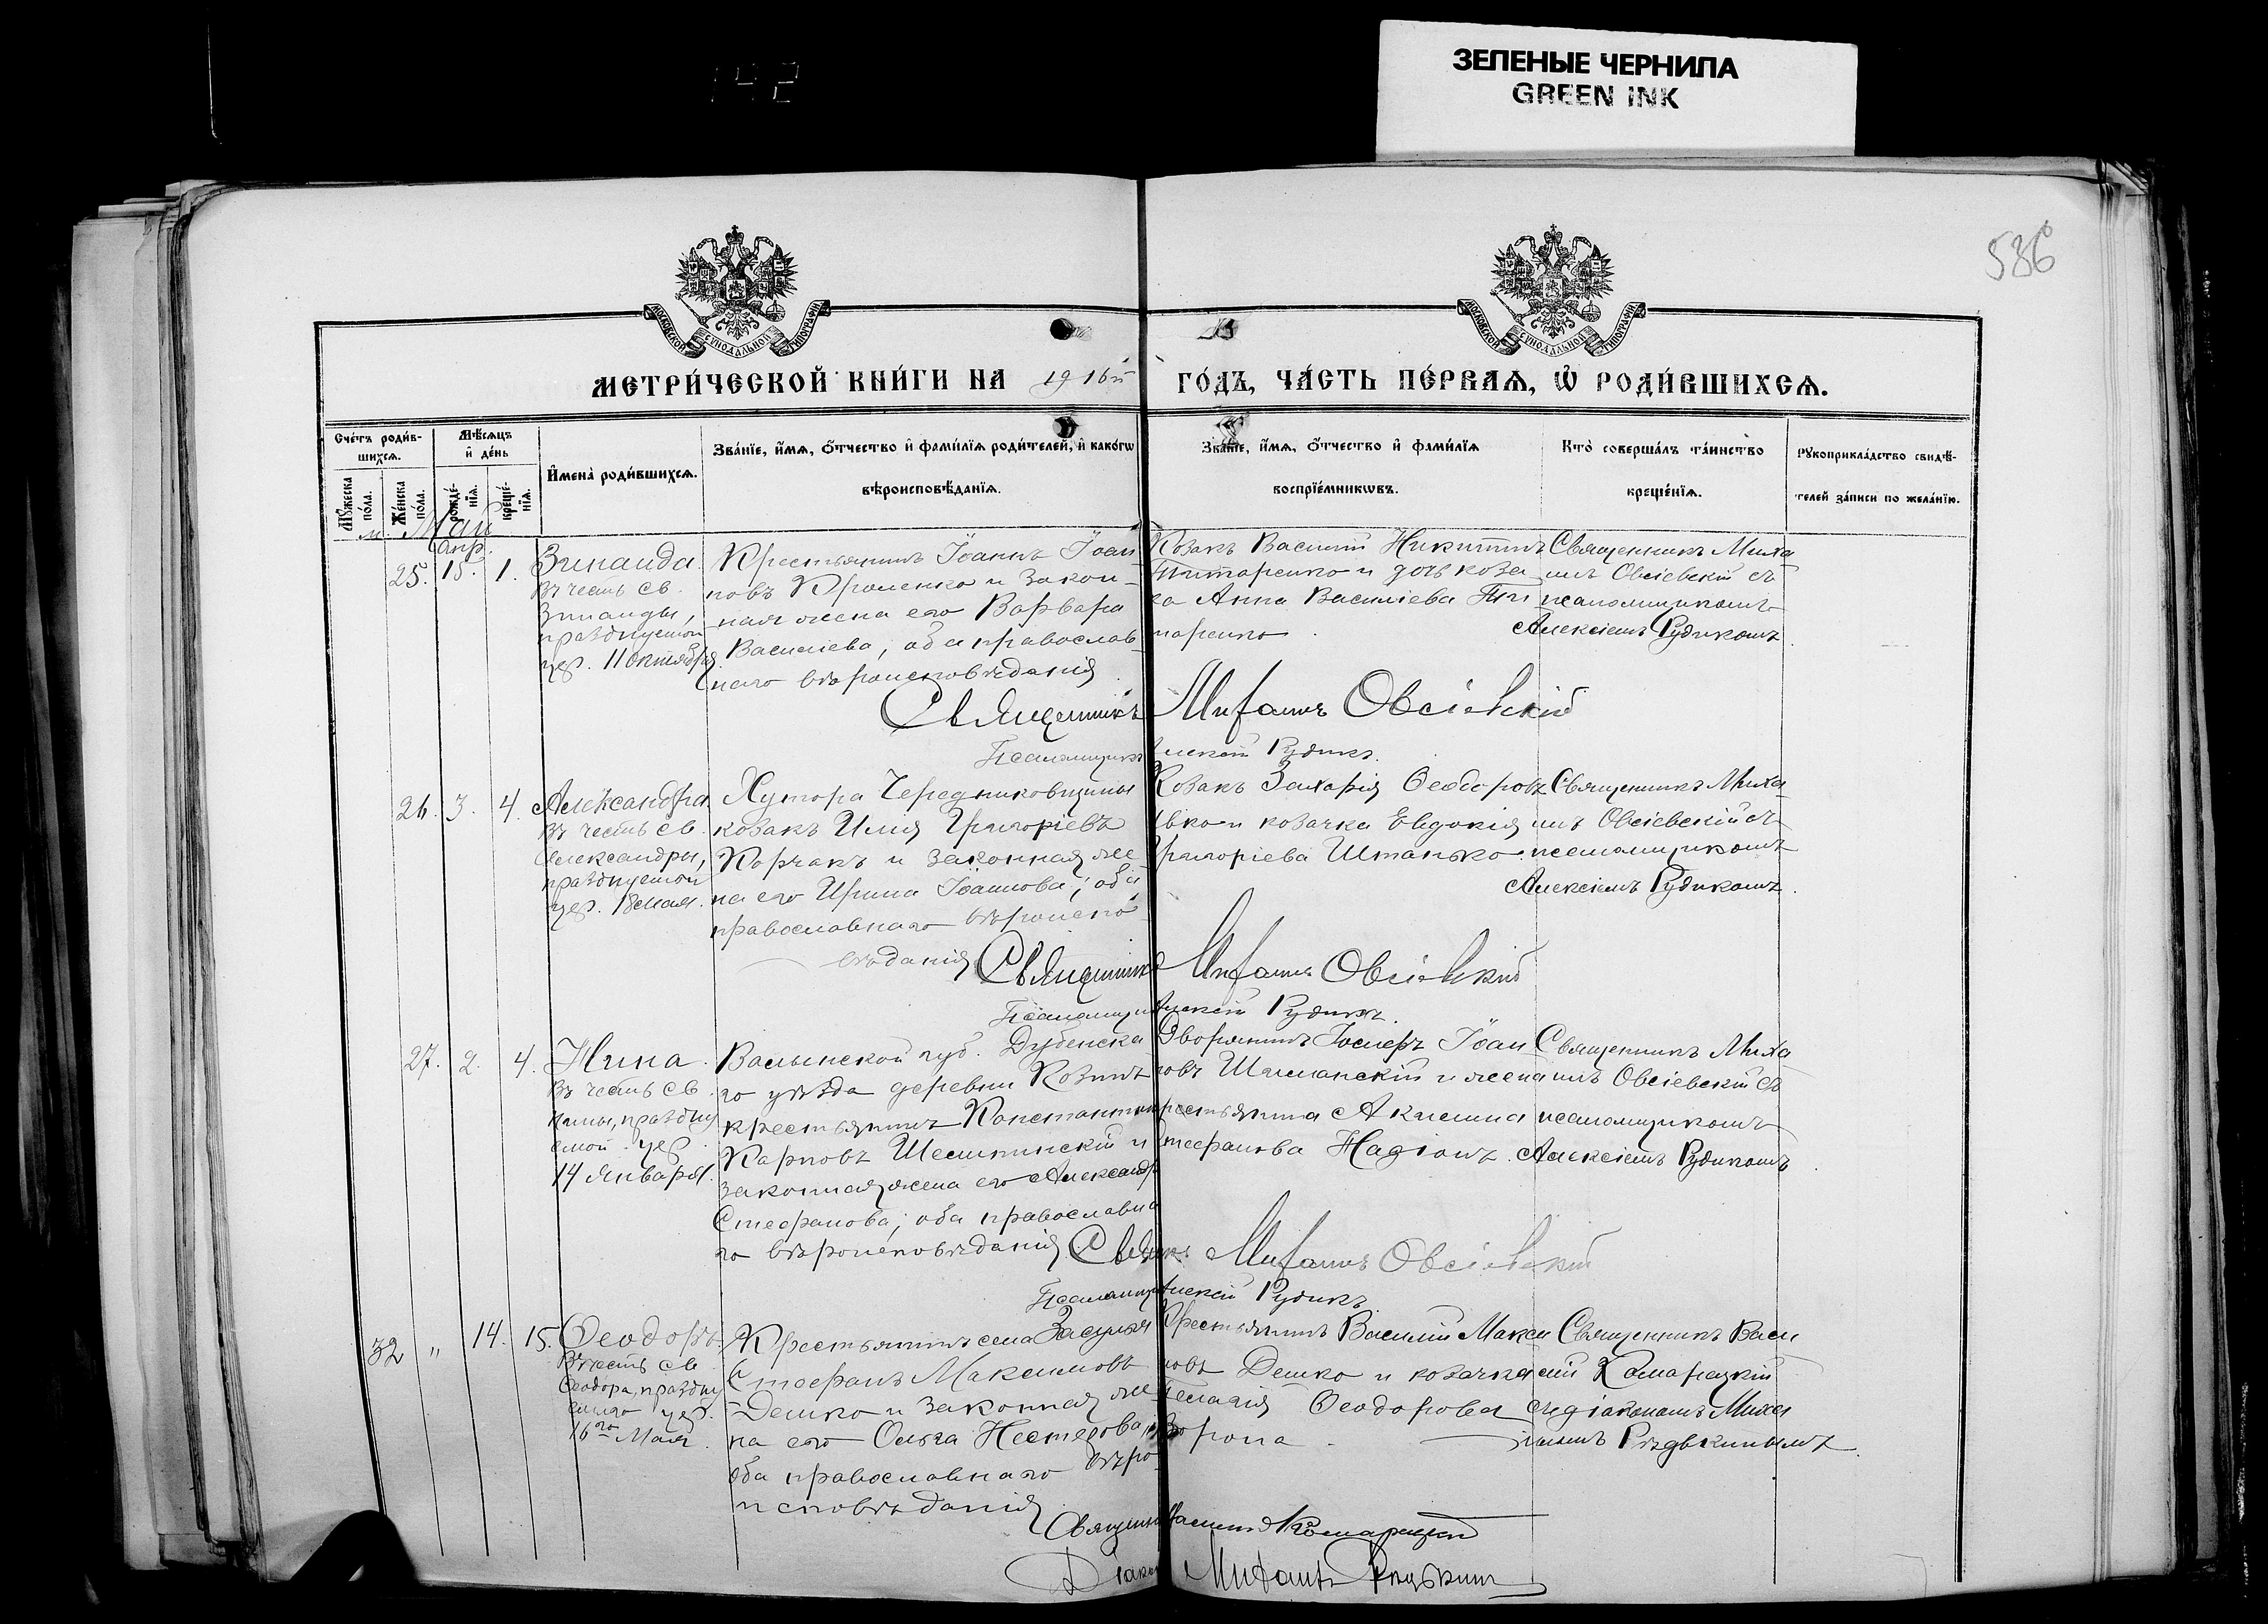 142
ЗЕЛЕНЫЕ ЧЕРНИЛА
GREEN INK
586
МОСКОВСКОЙ СУНОДАЛЬНОЙ ТИПОГРАФІИ
МОСКОВСКОЙ СУНОДАЛЬНОЙ ТИПОГРАФІИ
МЕТРИ́ЧЕСКОЙ КНИ́ГИ НА 1916й ГО́ДЪ, ЧА́СТЬ ПЕ́РВАѦ, Ѽ РОДИ́ВШИХСѦ.
Сче́тъ роди́в-
шихсѧ.
Мѣ́сѧцъ
и҆ де́нь
Мꙋ́жеска по́ла.
Же́нска по́ла.
рожде́-нїѧ.
креще́-нїѧ.
И҆мена̀ роди́вшихсѧ.
Зва́нїе, и҆́мѧ, ѻ҆́тчество и҆ фами́лїѧ роди́телей, и҆ како́гѡ
вѣроисповѣ́данїѧ.
Зва́нїе, и҆́мѧ, ѻ҆́тчество и҆ фами́лїѧ
воспрїе́мникѡвъ.
Кто̀ соверша́лъ та́инство
креще́нїѧ.
Рꙋкоприкла́дство свидѣ́-
телей за́писи по жела́нїю.
м. Май
апр.
25. 15. 1.
Зинаида
Въ честь св.
Зинаиды,
празднуемой
цер. 11 октября.
Крестьянинъ Іоаннъ Іоан
новъ Кроленко и закон-
ная жена его Варвара
Василіева, оба православ
наго вѣроисповѣданія
Козакъ Василій Никитинъ
Титаренко и дочь коза
ка Анна Василіева Ти
таренко
Священникъ Миха
илъ Овсіевскій съ
псаломщикомъ
Алексіемъ Рудикомъ.
Священникъ Михаилъ Овсіевскій
Псаломщикъ Алексій Рудикъ.
26. 3. 4.
Александра
Въ честь св.
Александры,
празднуемой
цер. 18 мая.
Хутора Чередниковщины
козакъ Илія Григоріевъ
Корчакъ и законная же
на его Ирина Іоаннова; оба
православнаго вѣроиспо-
вѣданія
Козакъ Захарія Ѳеодоровъ
Ивко и козачка Евдокія
Григоріева Штанько.
Священникъ Миха
илъ Овсіевскій съ
псаломщикомъ
Алексіемъ Рудикомъ.
Священникъ Михаилъ Овсіевскій
Псаломщикъ Алексій Рудикъ.
27. 2. 4.
Нина.
Въ честь св.
Нины, праздну
емой цер.
14 Января.
Волынской губ. Дубенска
го уѣзда деревни Козинъ
крестьянинъ Константинъ
Карповъ Шешинскій и
законная жена его Александра
Стефанова; оба православна
го вѣроисповѣданія
Дворянинъ Іосифъ Іоан
новъ Шиманскій и жена
крестьянина Акилина
Стефанова Надіонъ.
Священникъ Миха
илъ Овсіевскій съ
псаломщикомъ
Алексіемъ Рудикомъ.
Свящ. Михаилъ Овсіевскій
Псаломщ. Алексій Рудикъ.
32 " 14. 15.
Ѳеодоръ.
Въ честь св.
Ѳеодора, праздну
емаго цер.
16го Мая.
Крестьянинъ села Засулья
Стефанъ Максимовъ
Дешко и законная же
на его Ольга Нестерова,
оба православнаго вѣро-
исповѣданія
Крестьянинъ Василій Макси
мовъ Дешко и козачка
Пелагія Ѳеодорова
Ворона.
Священникъ Васи
лій Комарецкій
съ діакономъ Миха
иломъ Рѣдькинымъ.
Священ. Василій Комарецкій
Діаконъ Михаилъ Рѣдькинъ